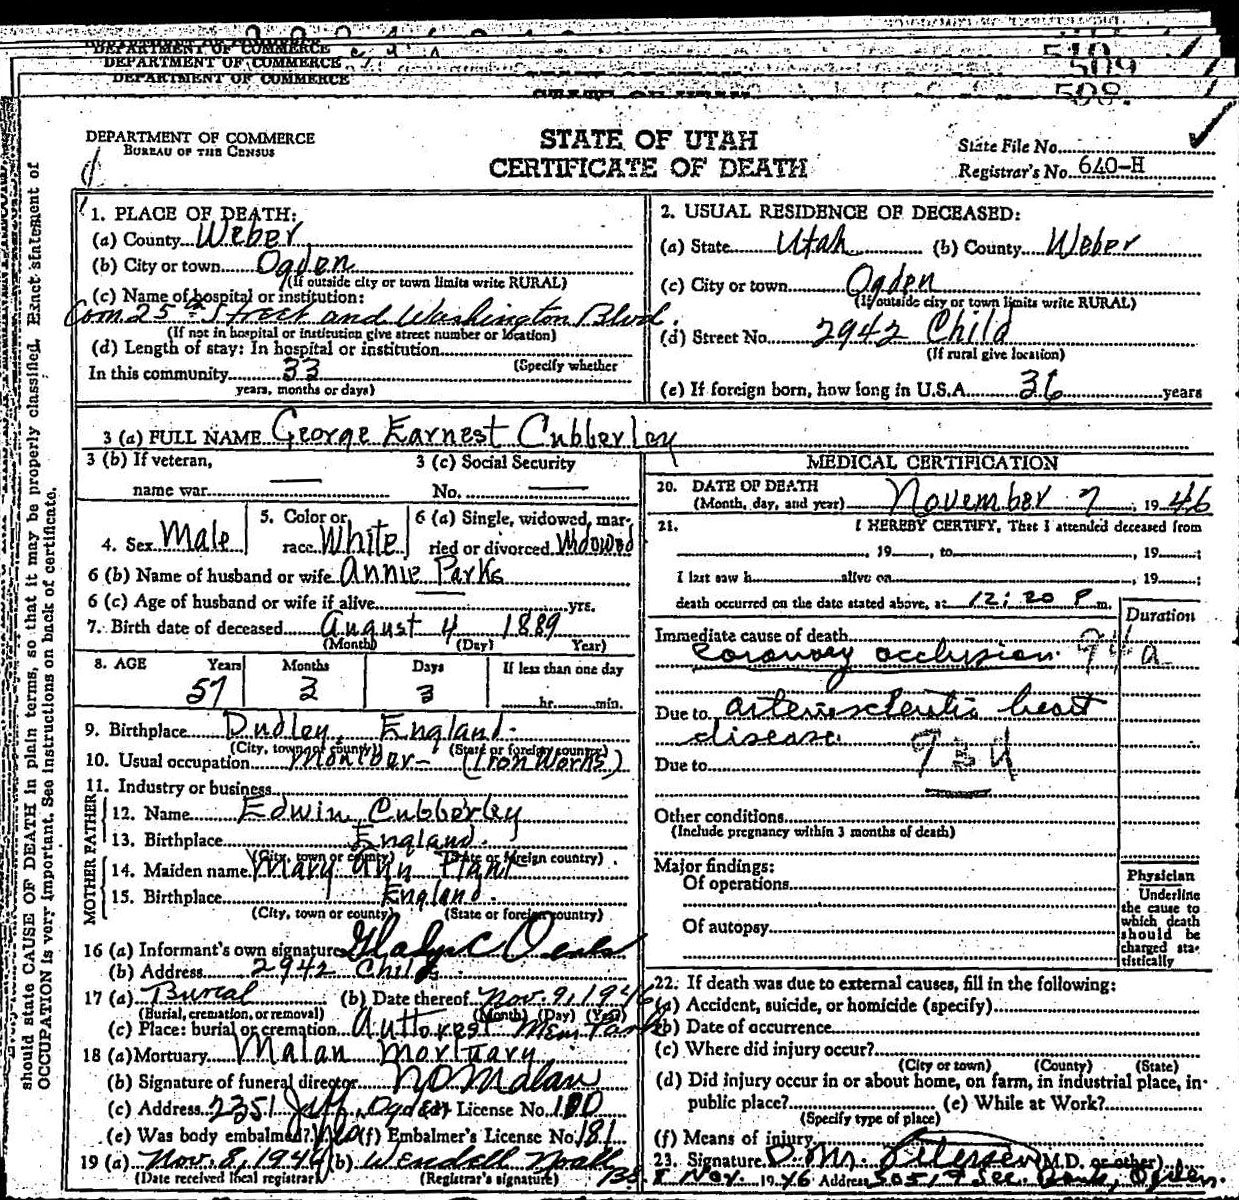 DEPARTMENT OF COMMERCE
DEPARTMENT OF COMMERCE
DEPARTMENT OF COMMERCE
510
509
508.
DEPARTMENT OF COMMERCE
BUREAU OF THE CENSUS
STATE OF UTAH
CERTIFICATE OF DEATH
State File No.
Registrar's No. 640-H
should state CAUSE OF DEATH in plain terms, so that it may be properly classified. Exact statement of
OCCUPATION is very important. See instructions on back of certificate.
1. PLACE OF DEATH:
(a) County Weber
(b) City or town Ogden
(If outside city or town limits write RURAL)
(c) Name of hospital or institution:
Corn 25th Street and Washington Blvd.
(If not in hospital or institution give street number or location)
(d) Length of stay: In hospital or institution
(Specify whether
In this community 33
years, months or days)
2. USUAL RESIDENCE OF DECEASED:
(a) State Utah (b) County Weber
(c) City or town Ogden
(If outside city or town limits write RURAL)
(d) Street No. 2942 Child
(If rural give location)
(e) If foreign born, how long in U.S.A. 36 years
3 (a) FULL NAME George Earnest Cubberley
3 (b) If veteran, 3 (c) Social Security
name war — No. —
4. Sex Male 5. Color or race White 6 (a) Single, widowed, married or divorced Widowed
6 (b) Name of husband or wife Annie Parks
6 (c) Age of husband or wife if alive — yrs.
7. Birth date of deceased August 4 1889
(Month) (Day) Year)
8. AGE Years Months Days If less than one day
57 3 3 hr. min.
9. Birthplace Dudley, England
(City, town or county) (State or foreign country)
10. Usual occupation Moulder - (Iron Works)
11. Industry or business
FATHER
12. Name Edwin Cubberley
13. Birthplace England
(City, town or county) (State or foreign country)
MOTHER
14. Maiden name Mary Ann Plant
15. Birthplace England
(City, town or county) (State or foreign country)
16 (a) Informant's own signature Gladys C
(b) Address 2942 Child
17 (a) Burial (b) Date thereof Nov. 9, 1946
(Burial, cremation, or removal) (Month) (Day) (Year)
(c) Place: burial or cremation Aultorest Mem Park
18 (a) Mortuary Malan Mortuary
(b) Signature of funeral director Malan
(c) Address 2351 Jeff, Ogden License No. 100
(e) Was body embalmed? (f) Embalmer's License No. 181
19 (a) Nov. 8, 1946 (b) Wendell Noall
(Date received local registrar) (Registrar's signature)
MEDICAL CERTIFICATION
20. DATE OF DEATH
(Month, day, and year) November 7, 1946
21. I HEREBY CERTIFY, That I attended deceased from
, 19 , to , 19 ;
I last saw h alive on , 19 ;
death occurred on the date stated above, at 12:20 P m.
Duration
Immediate cause of death
coronary occlusion 94a
Due to arteriosclerotic heart
disease 934
Due to
Other conditions
(Include pregnancy within 3 months of death)
Major findings:
Of operations
Of autopsy
Physician
Underline
the cause to
which death
should be
charged sta-
tistically
22. If death was due to external causes, fill in the following:
(a) Accident, suicide, or homicide (specify)
(b) Date of occurrence
(c) Where did injury occur?
(City or town) (County) (State)
(d) Did injury occur in or about home, on farm, in industrial place, in-
public place? (e) While at Work?
(Specify type of place)
(f) Means of injury
23. Signature (M.D. or other)
Nov. 1946 Address Ogden.